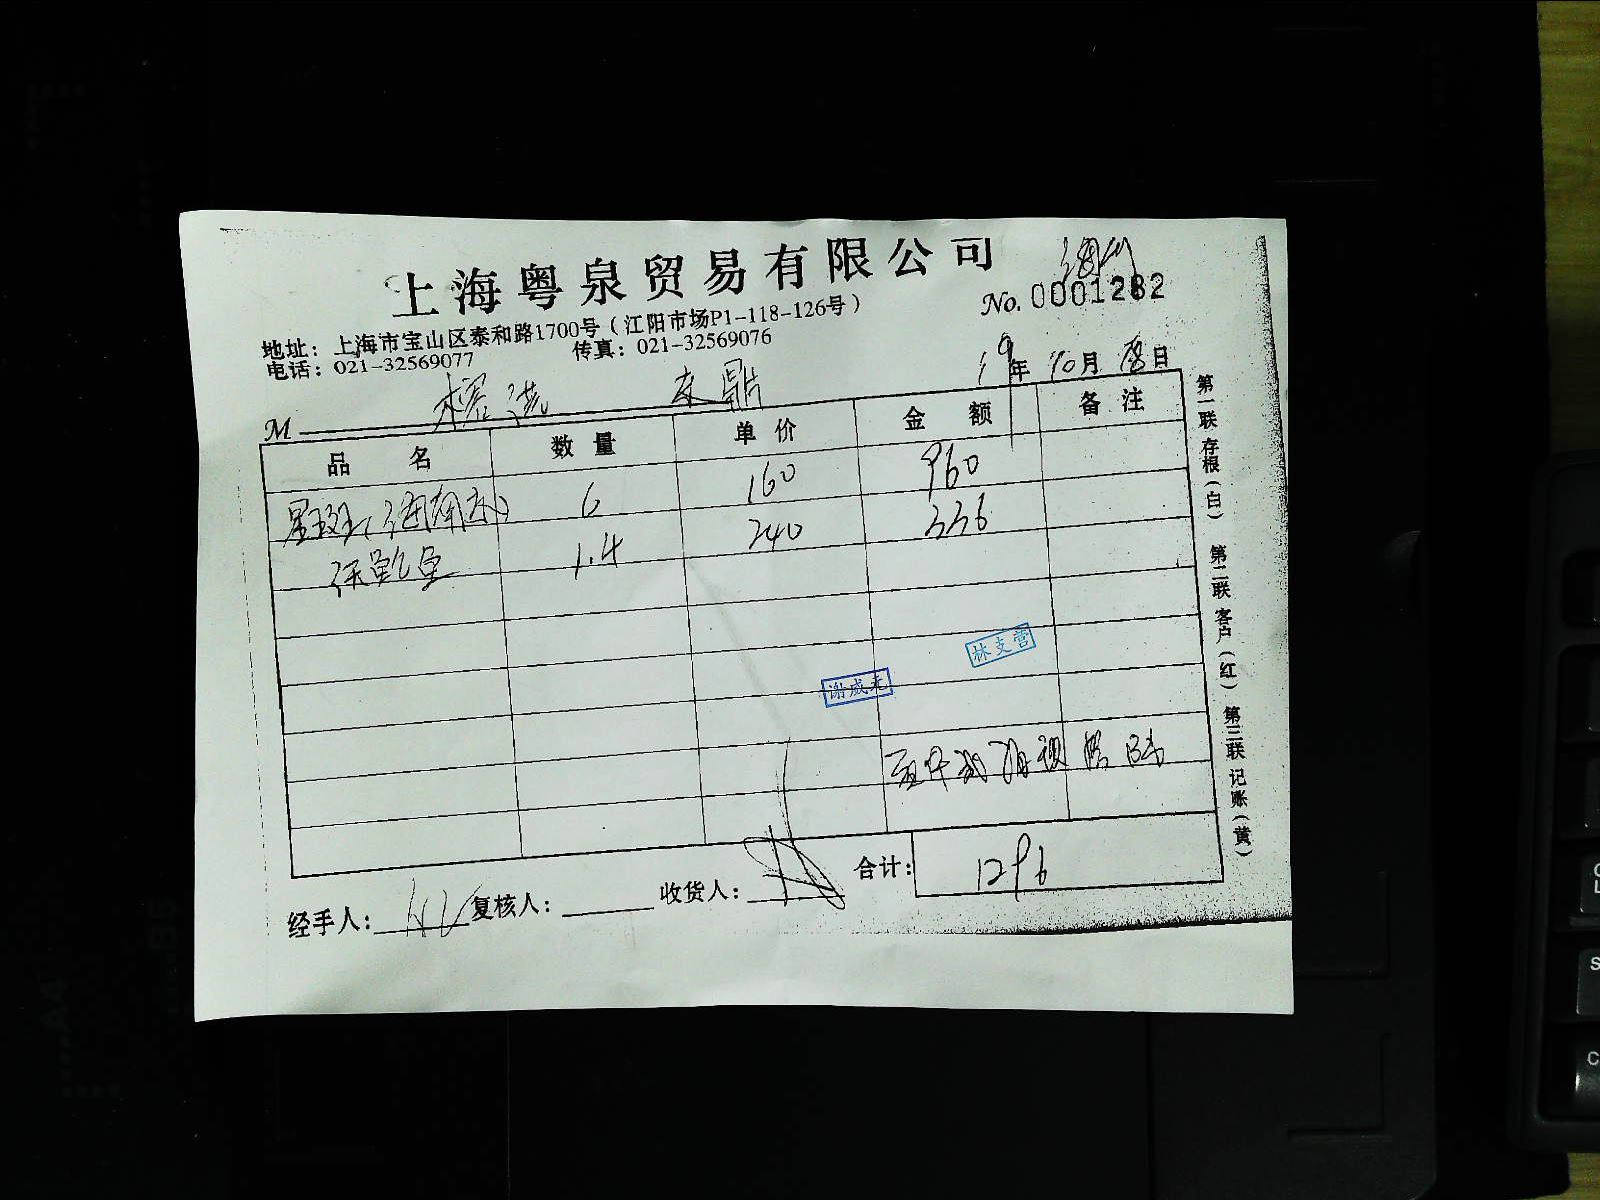 上海粤泉贸易有限公司
No. 0001282
地址：上海市宝山区泰和路1700号（江阳市场P1-118-126号）
电话：021-32569077 传真：021-32569076
19年10月 日
M 鼎
品名 数量 单价 金额 备注
星斑（海南 ） 6 160 960
鱼 1.4 240 336
林支营
谢威元
合计：1296
经手人： 复核人： 收货人：
第一联 存根（白） 第二联 客户（红） 第三联 记账（黄）